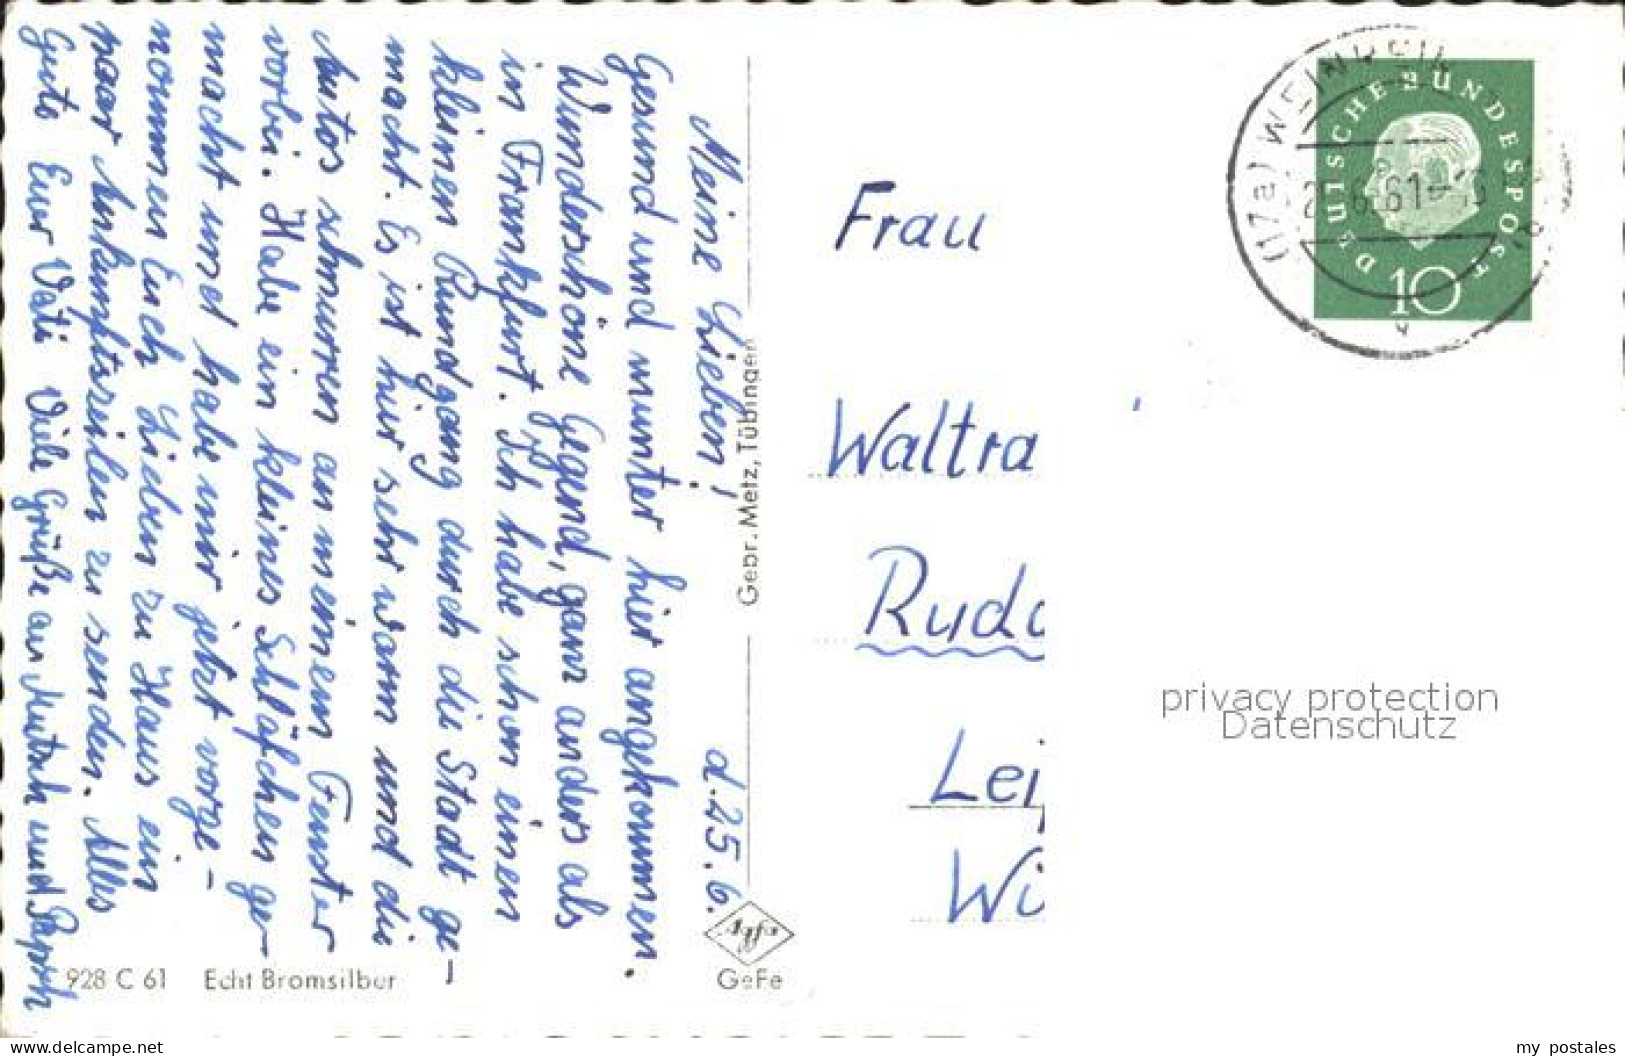 Meine Lieben! d. 25. 6.
Gesund und munter hier angekommen.
Wunderschöne Gegend, ganz anders als
in Frankfurt. Ich habe schon einen
kleinen Rundgang durch die Stadt ge-
macht. Es ist hier sehr warm und die
Autos schnurren an meinem Fenster
vorbei. Habe ein kleines Schläfchen ge-
macht und habe mir jetzt vorge-
nommen Euch Lieben zu Haus ein
paar Ankunftszeilen zu senden. Alles
Gute Euer Vati Viele Grüße an und
928 C 61 Echt Bromsilber
Gebr. Metz, Tübingen
GeFe
Frau
Waltra
Rudo
Lei
Wi
DEUTSCHE BUNDESPOST
10
(17a) WEINHEIM
6.61
privacy protection
Datenschutz
www.delcampe.net
my postales